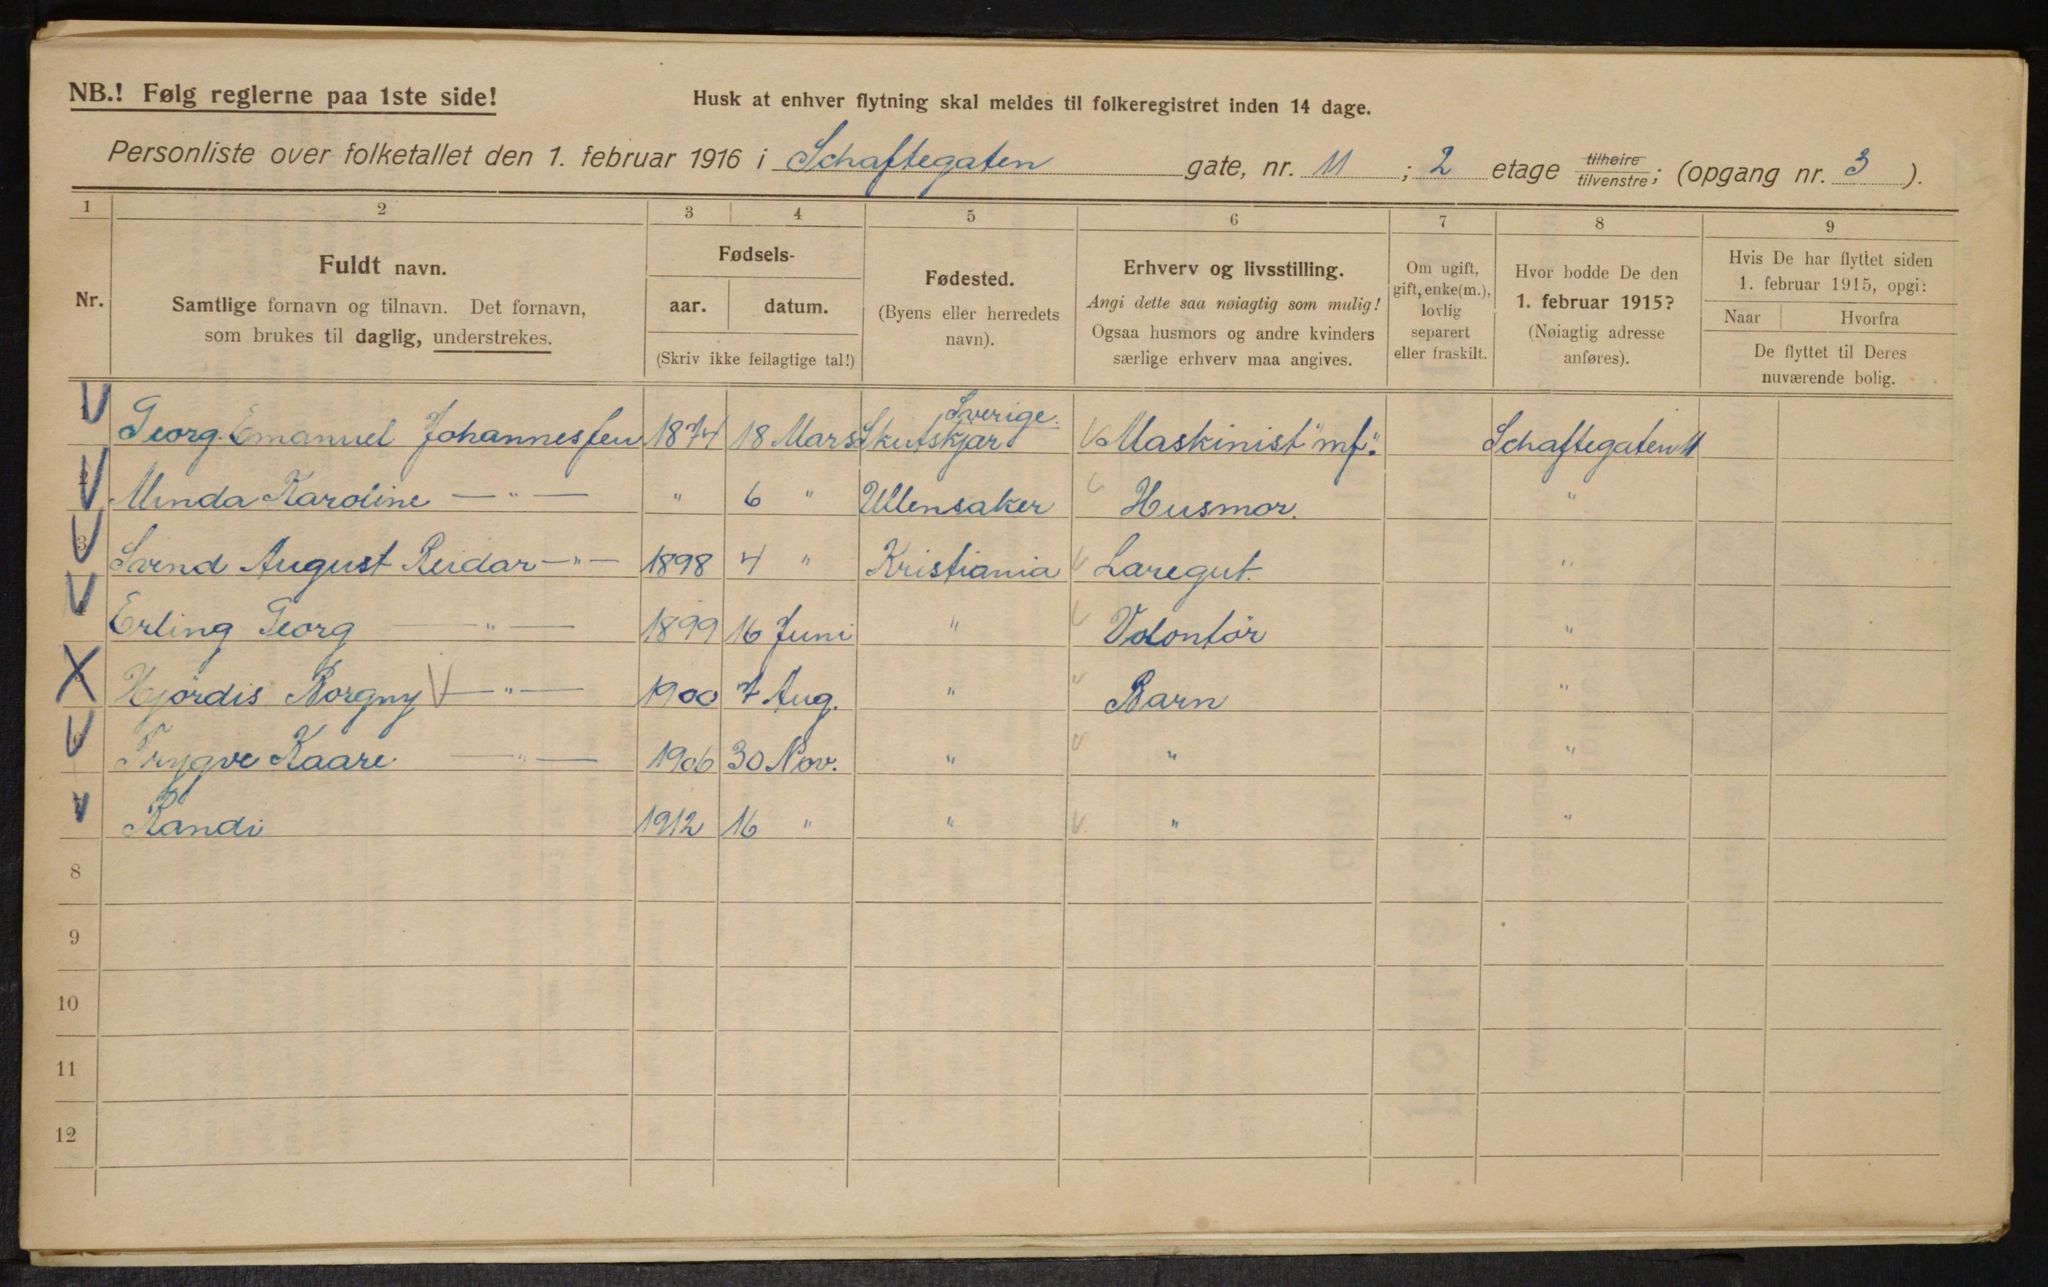 NB.! Følg reglerne paa 1ste side!
Husk at enhver flytning skal meldes til folkeregistret inden 14 dage.
Personliste over folketallet den 1. februar 1916 i Schaftegaten gate, nr. 11 ; 2 etage tilhøire tilvenstre; (opgang nr. 3 ).
1 2 3 4 5 6 7 8 9
Nr.
Fuldt navn.
Samtlige fornavn og tilnavn. Det fornavn,
som brukes til daglig, understrekes.
Fødsels-
aar. datum.
(Skriv ikke feilagtige tal!)
Fødested.
(Byens eller herredets
navn).
Erhverv og livsstilling.
Angi dette saa nøiagtig som mulig!
Ogsaa husmors og andre kvinders
særlige erhverv maa angives.
Om ugift,
gift, enke(m.),
lovlig
separert
eller fraskilt.
Hvor bodde De den
1. februar 1915?
(Nøiagtig adresse
anføres).
Hvis De har flyttet siden
1. februar 1915, opgi:
Naar Hvorfra
De flyttet til Deres
nuværende bolig.
Georg. Emanuel Johannessen 1874 18 Mars Skutskjær Sverige. Maskinist "mf". Schaftegaten 11
Minda Karoline — " — " 6 " Ullensaker Husmor. "
3 Svend August Reidar — " — 1898 4 " Kristiania Læregut. "
Erling Georg — " — 1899 16 Juni " Volontör "
Hjördis Borgny — " — 1900 7 Aug. " Barn "
Trygve Kaare — " — 1906 30 Nov. " " "
Randi 1912 16 " " " "
8
9
10
11
12